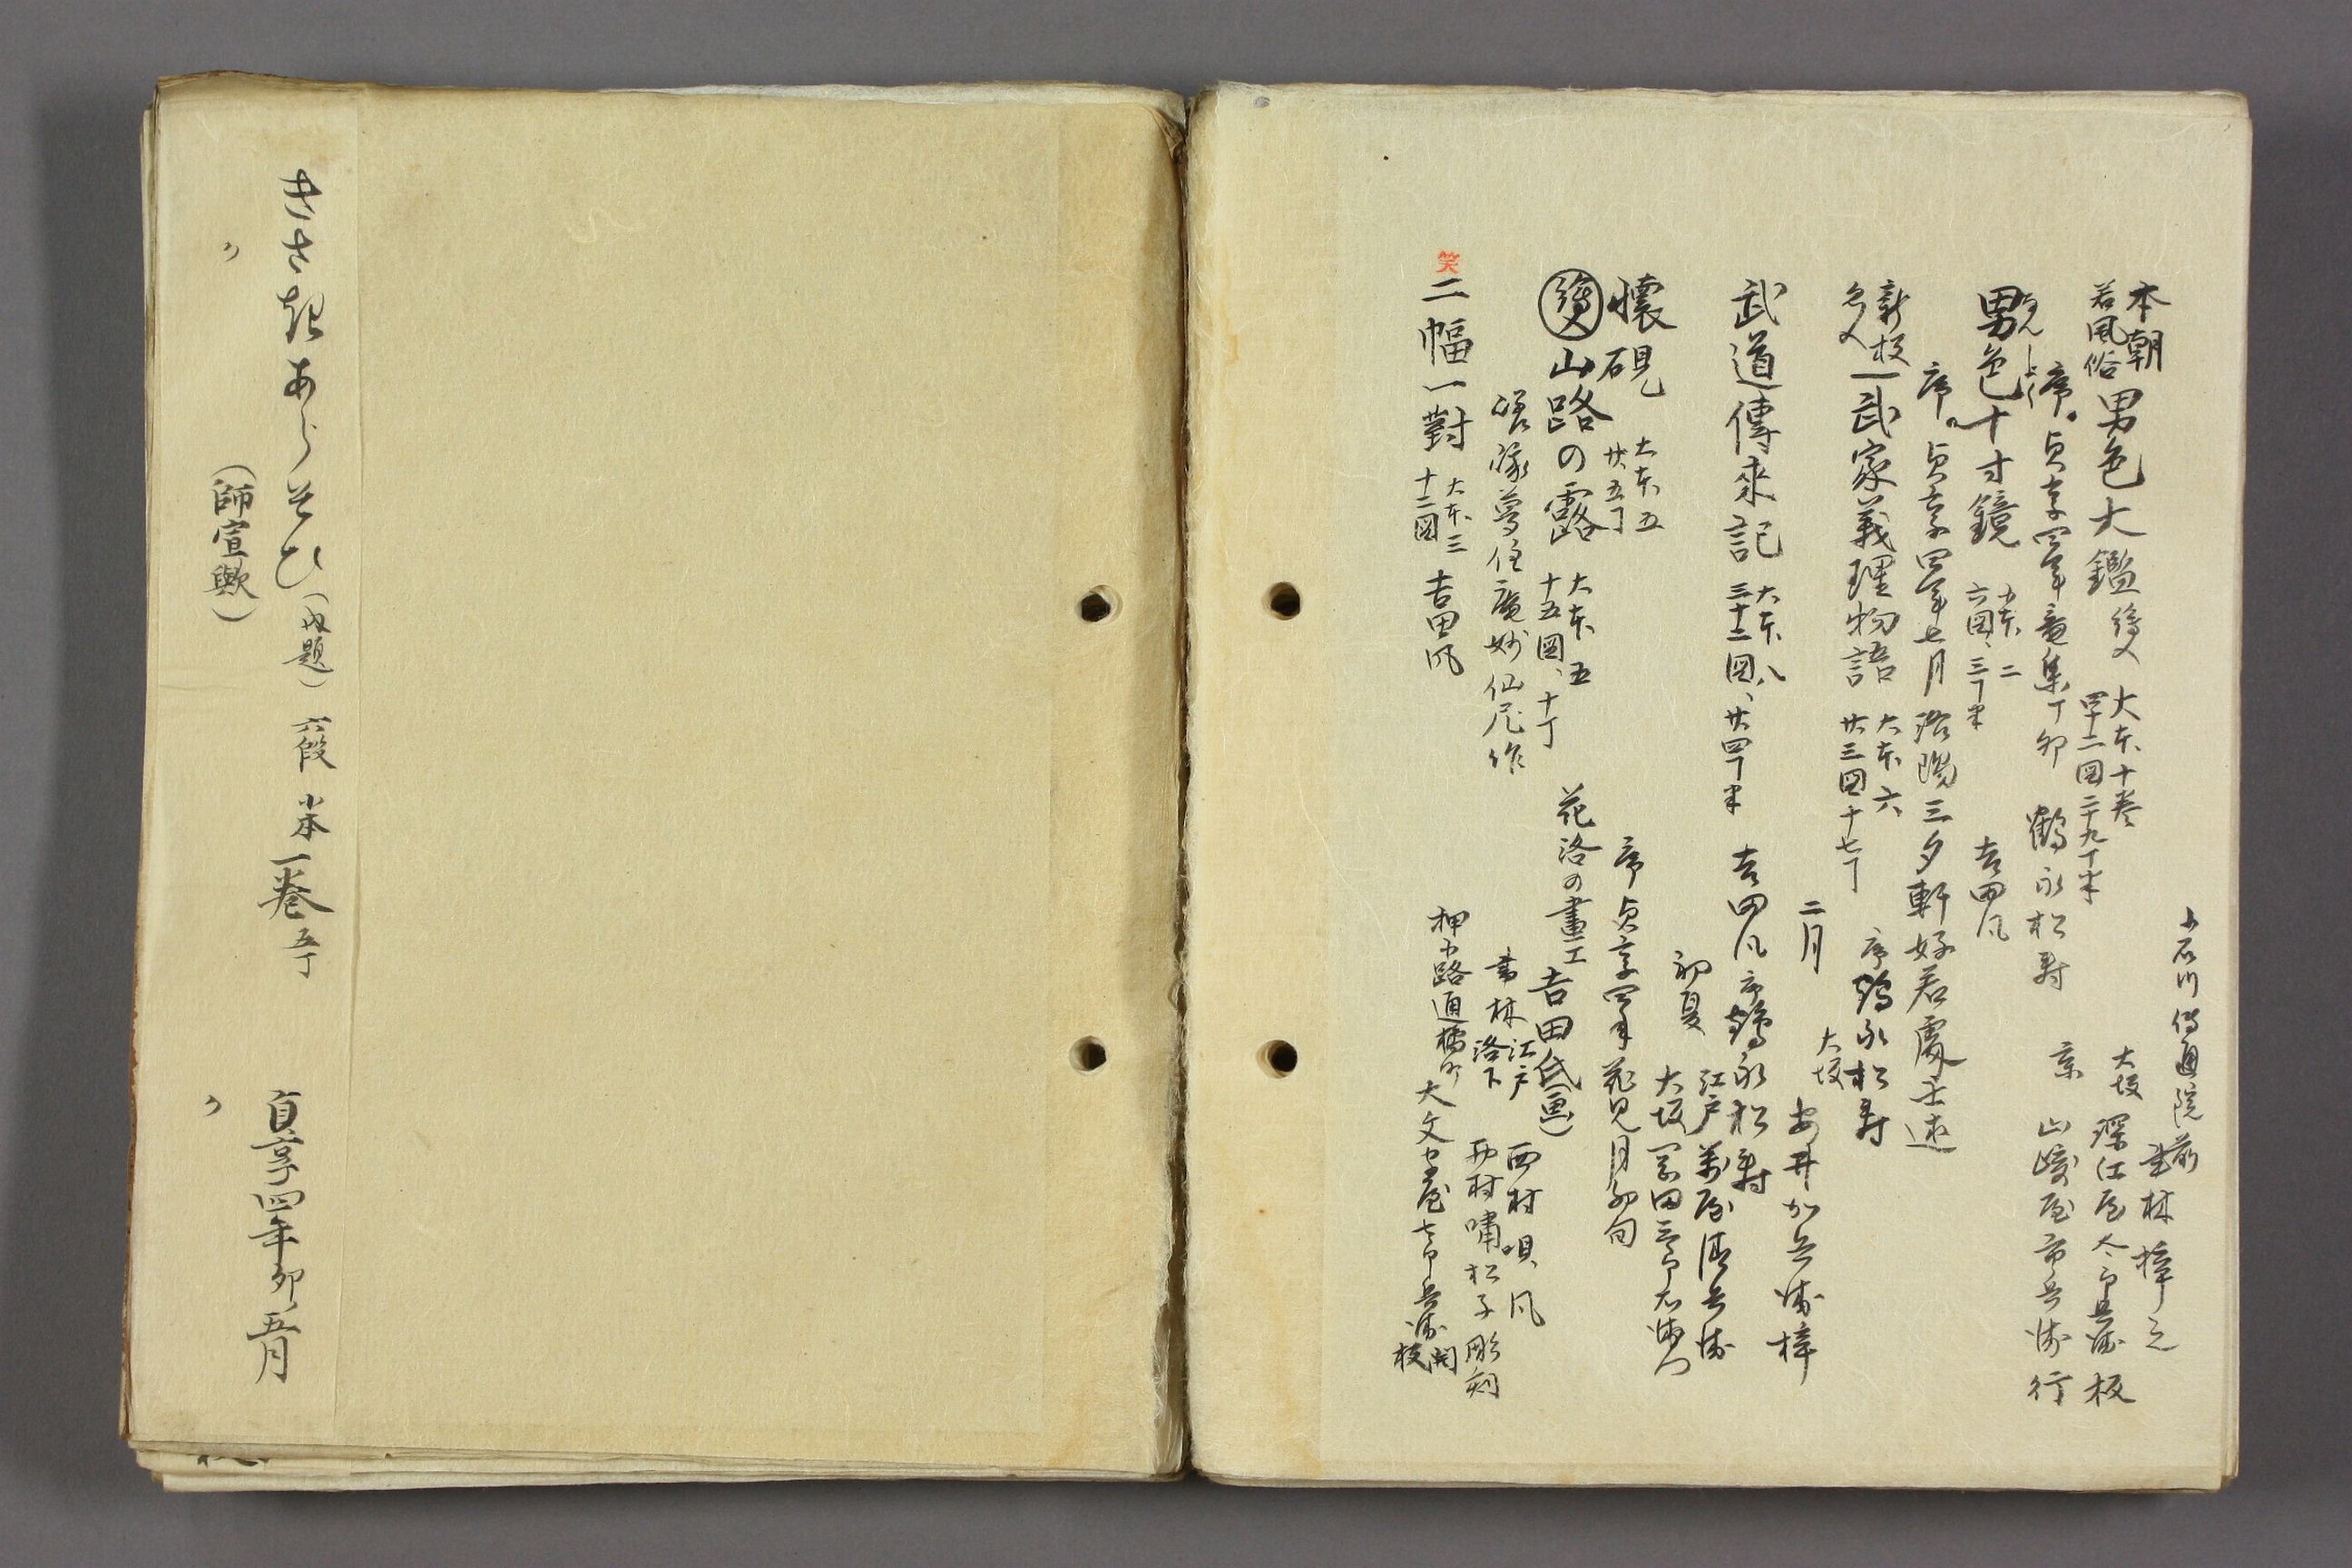 小石川傳通院前 書林梓之
本朝
若風俗 男色大鑑 大本十巻
四十二図二十九丁半
大坂 深江屋太郎兵衛板
京 山崎屋市兵衛行
序。貞享四年 丁卯 鶴永松壽
男色十寸鏡 小本二
六図、三丁半 吉田風
序。貞享四年七月洛陽三夕軒好若處士述
新板 武家義理物語 大本六
廿三図十七丁 序鶴永松壽
二月 大坂 安井加兵衛梓
武道傳來記 大本八
三十二図、廿四丁半 吉田風 序鶴永松壽
初夏 江戸 萬屋清兵衛
大坂 岡田三郎右衛門
懐硯 大本五
廿五丁 序貞享四年花見月初旬
山路の露 大本五
十五図、十丁 花洛の畫工吉田氏(画)
嵯峨夢住庵妙仙尼作 書林 江戸 西村唄風
洛下 西村嘯松子彫刻
笑 二幅一對 大本三
十二図 吉田風 押小路通橘町 大文字屋七郎兵衛開板
きさきあらそひ(内題) 六段 半本一巻五丁 貞享四年卯五月
〃 (師宣歟) 〃